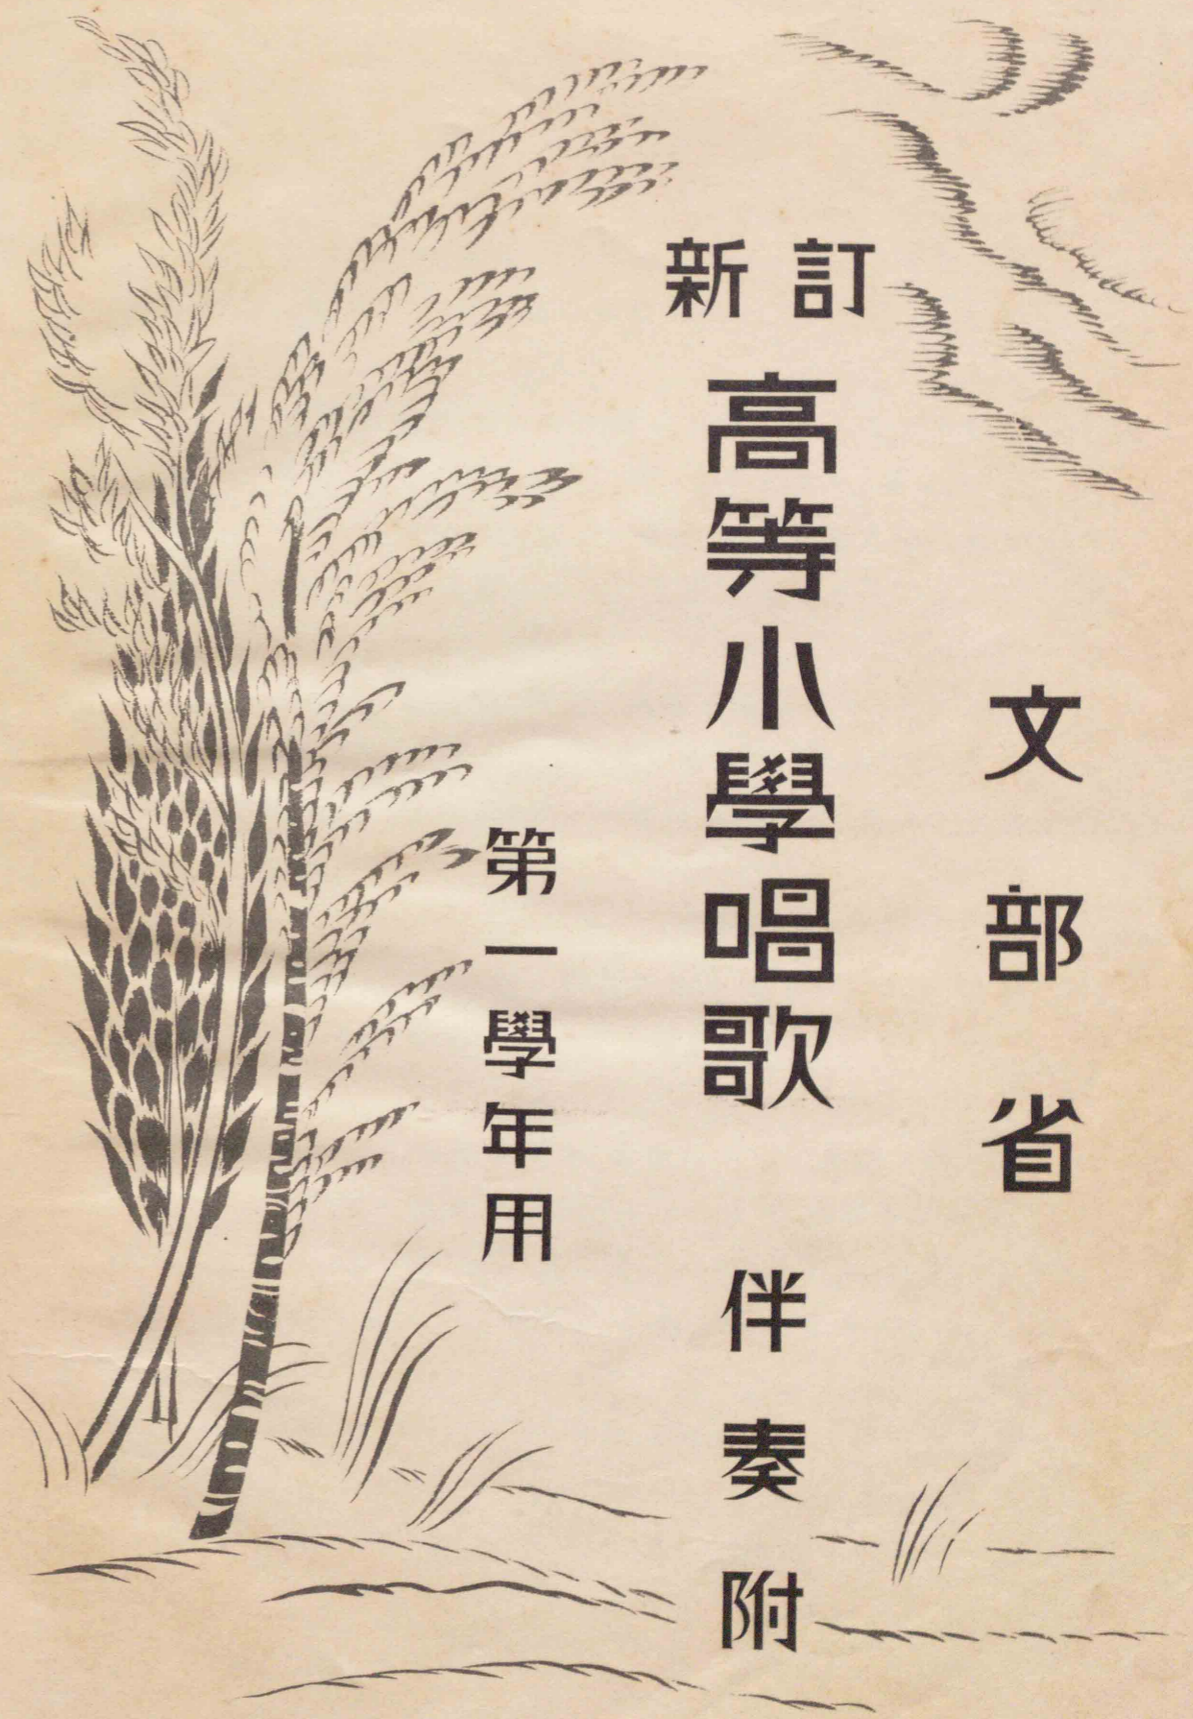 文部省
新訂
高等小學唱歌 伴奏附
第一學年用